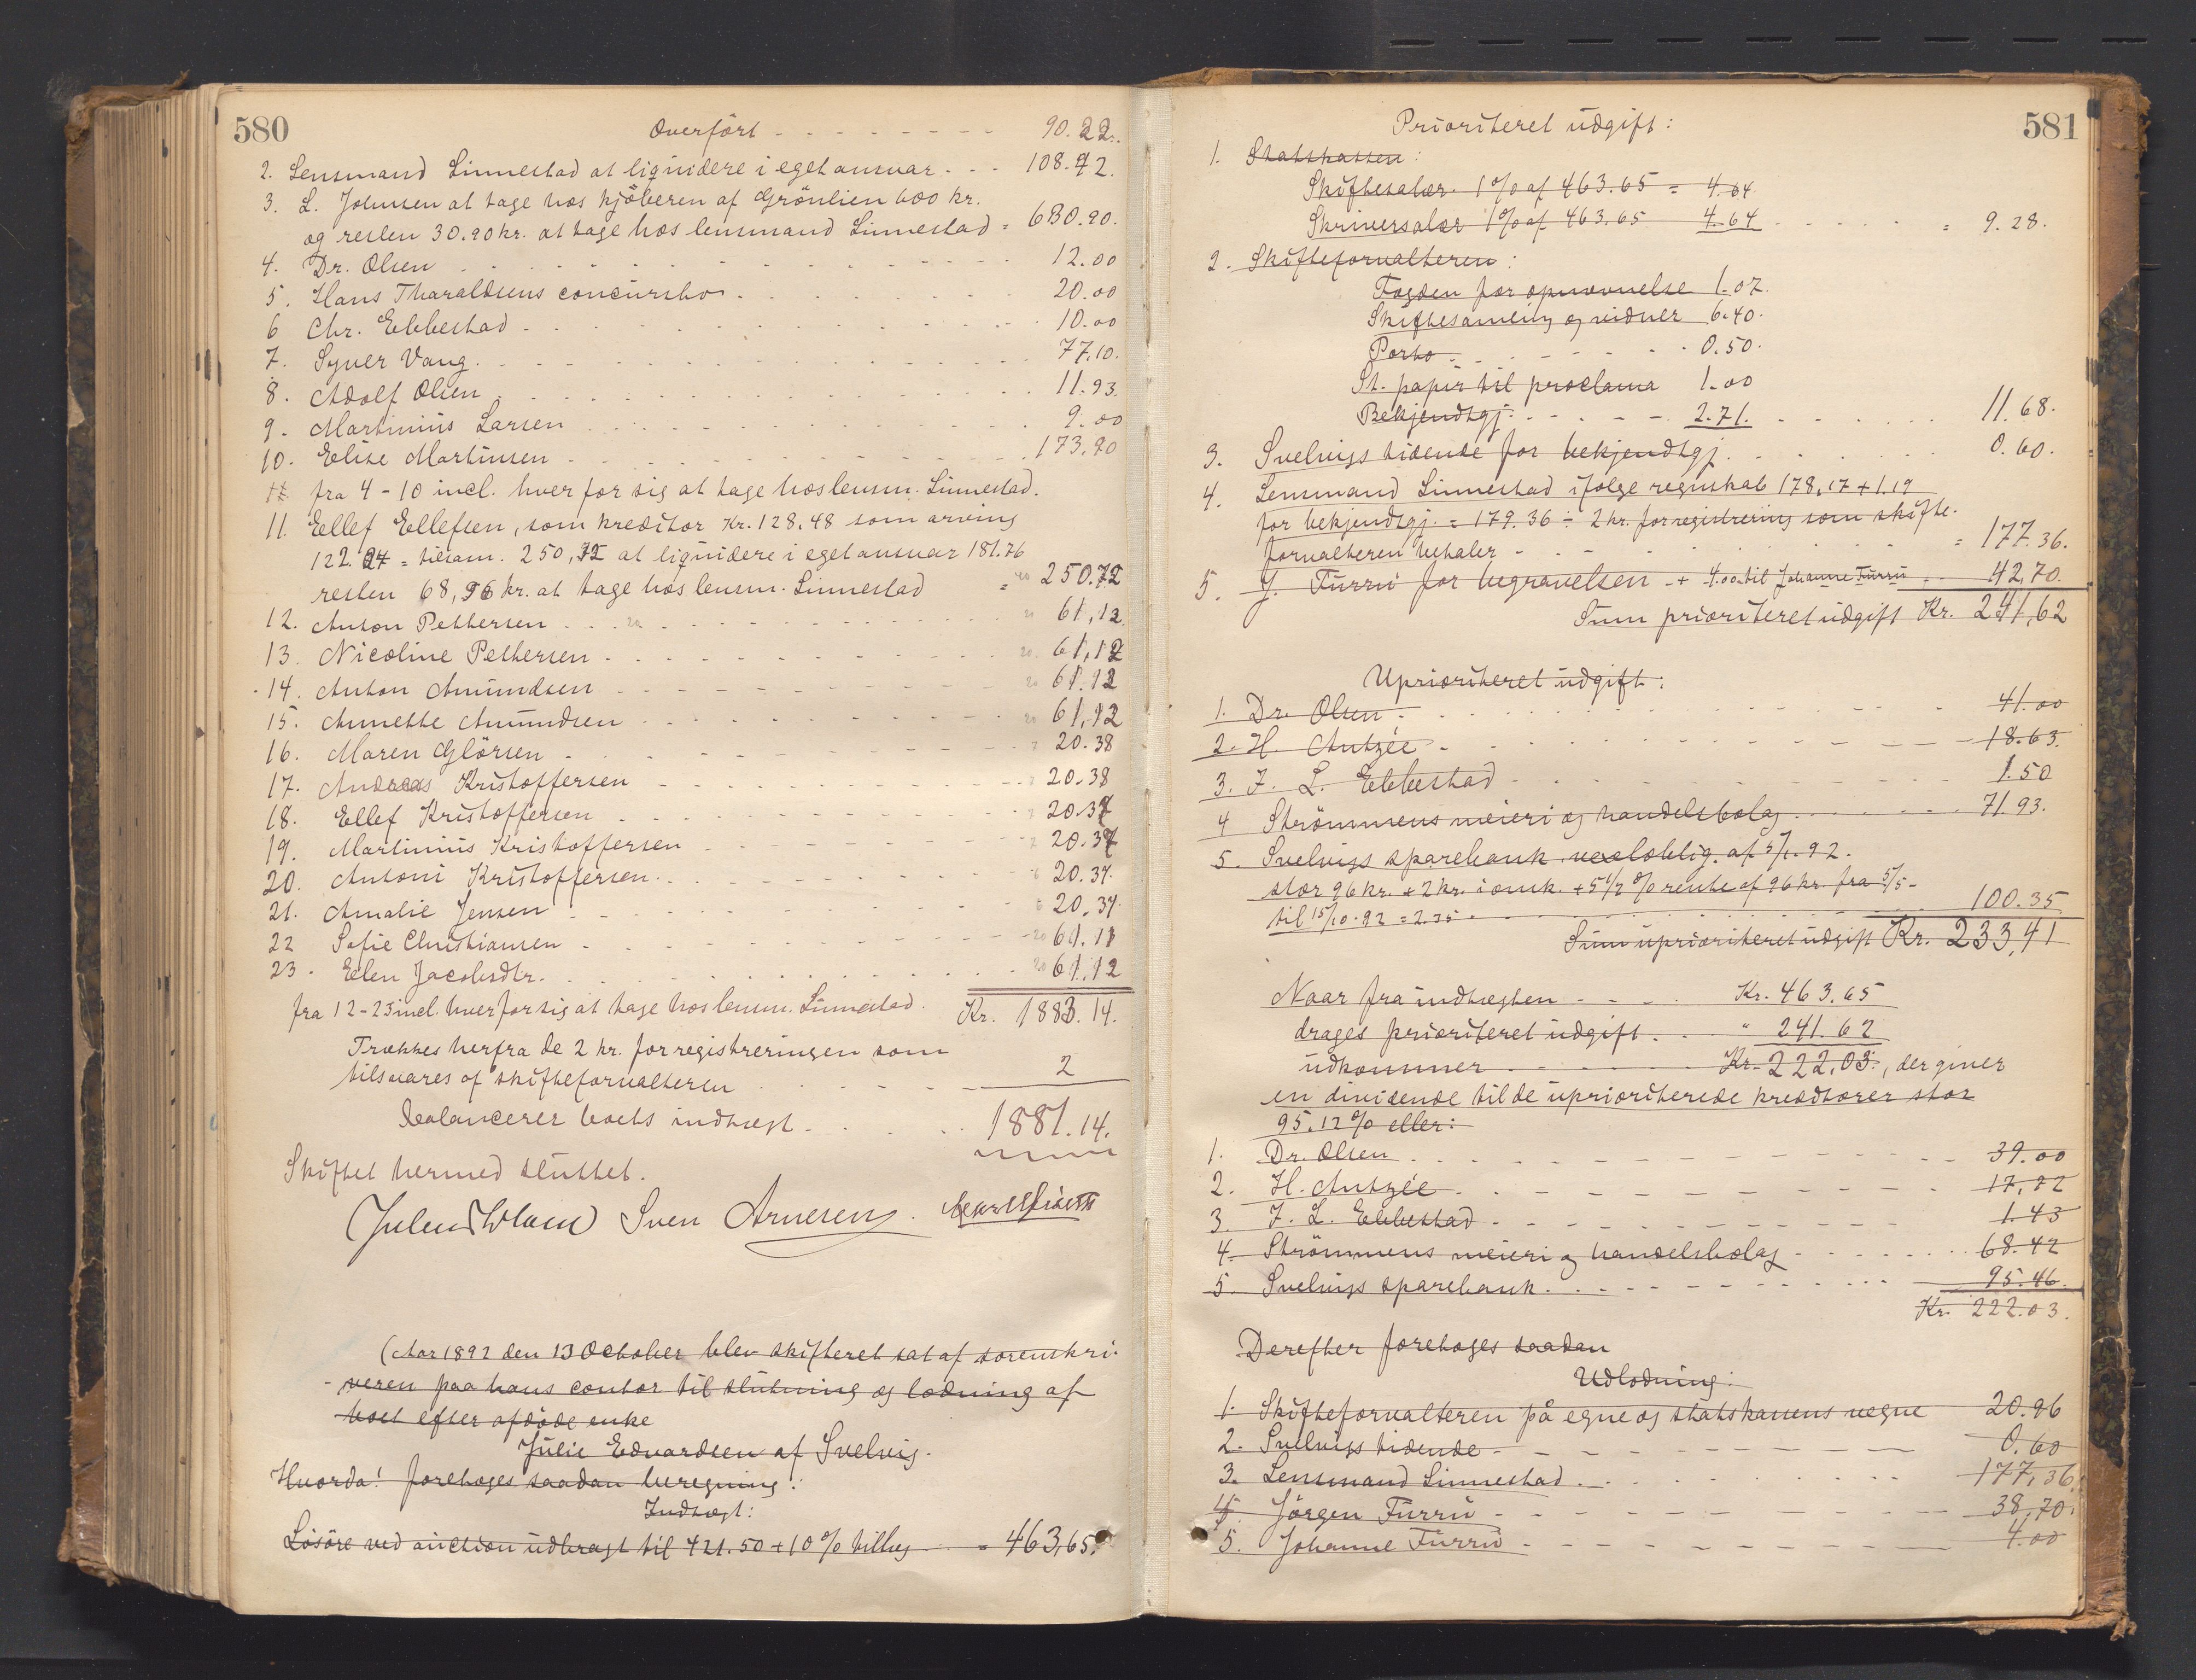 580
Overført - - - - - - - 90.22.
2. Lensmand Linnestad at liqvidere i eget ansvar - - - 108.72.
3. L. Johnsen at tage hos kjøberen af Grønlien 600 kr.
og resten 30.90 kr. at tage hos lensmand Linnestad = 630.90.
4. Dr. Olsen - - - - - 12.00
5. Hans Tharaldsens concursbo - - - - - 20.00
6 Chr. Ebbestad - - - - - 10.00
7. Syver Vang - - - - - 77.10.
8. Adolf Olsen - - - - - 11.93.
9. Martinius Larsen - - - - - 9.00
10. Elise Martinsen - - - - - 173.90
fra 4-10 incl. hver for sig at tage hos lensm. Linnestad.
11. Ellef Ellefsen, som kreditor Kr. 128,48 som arving
122.24 = tilsam. 250,72 at liqvidere i eget ansvar 181.76
resten 68,96 kr. at tage hos lensm. Linnestad = 250.72
12. Anton Pettersen - - - - - 61,12.
13. Nicoline Pettersen - - - - - 61,12
14. Anton Amundsen - - - - - 61.12
15. Annette Amundsen - - - - - 61,12
16. Maren Glørsen - - - - - 20.38
17. Andreas Kristoffersen - - - - - 20.38
18. Ellef Kristoffersen - - - - - 20.37
19. Martinius Kristoffersen - - - - - 20.37
20. Antoni Kristoffersen - - - - - 20.37.
21. Amalie Jensen - - - - - 20.37.
22 Sofie Christiansen - - - - - 61.11
23. Elen Jacobsdtr. - - - - - 61.12
fra 12-23 incl. hver for sig at tage hos lensm. Linnestad. Kr. 1883.14.
Trækkes herfra de 2 kr. for registreringen som
tilsvares af skifteforvalteren - - - - - 2
balancerer boets indtægt - - - - - 1881.14.
Skiftet hermed sluttet.
Sven Arnesen.
(Aar 1892 den 13 October blev skifteret sat af sorenskri-
veren paa hans contor til slutning og lodning af
boet efter afdøde enke
Julie Edvardsen af Svelvig.
Hvorda! foretoges saadan beregning:
Indtægt:
Løsøre ved auction udbragt til 421.50 + 10% tillæg = 463,65.
581
Prioriteret udgift:
1. Statskassen:
Skiftesalær 1% af 463.65 = 4.64
Skriversalær 1% af 463.65 4.64 - - - - - = 9.28.
2. Skifteforvalteren:
Fogden for opnævnelse 1.07.
Skiftesamling og vidner 6.40.
Porto - - - - - 0.50.
St. papir til proclama 1.00
Bekjendtgj. - - - - - 2.71. - - - - - 11.68.
3. Svelvigs tidende for bekjendtgj. - - - - - 0.60.
4. Lensmand Linnestad ifølge regnskab 178,17 + 1.19
for bekjendtgj. = 179.36 ÷ 2 kr. for registrering som skifte-
forvalteren betaler - - - - - = 177.36.
5. J. Furru for begravelsen + 4.00 til Johanne Furru - - 42,70.
Sum prioriteret udgift Kr. 241,62
Uprioriteret udgift:
1. Dr. Olsen - - - - - 41.00
2. H. Antzée - - - - - 18.63.
3. F. L. Ebbestad - - - - - 1.50
4 Strømmens meieri og handelsbolag - - - - - 71.93.
5. Svelvigs sparebank vexeloblig. af 5/1.92.
stor 96 kr. + 2 kr. i omk. + 5 1/2 % rente af 96 kr. fra 5/5 -
til 15/10.92 = 2.35 - - - - - 100.35
Sum uprioriteret udgift Kr. 233,41
Naar fra indtægten - - - - Kr. 463.65
drages prioriteret udgift - - " 241.62
udkommer - - - - - Kr. 222,03., der giver
en dividende til de uprioriterede kreditorer stor
95.12 % eller:
1. Dr. Olsen - - - - - 39.00
2. H. Antzée - - - - - 17,72
3. F. L. Ebbestad - - - - - 1.43
4. Strømmens meieri og handelsbolag - - - - - 68.42
5. Svelvigs sparebank - - - - - 95.46.
Kr. 222.03.
Derefter foretoges saadan
Udlodning:
1. Skifteforvalteren på egne og statskassens vegne 20.96
2. Svelvigs tidende - - - - - 0.60
3. Lensmand Linnestad - - - - - 177,36.
4. Jørgen Furru - - - - - 38,70.
5. Johanne Furru - - - - - 4.00